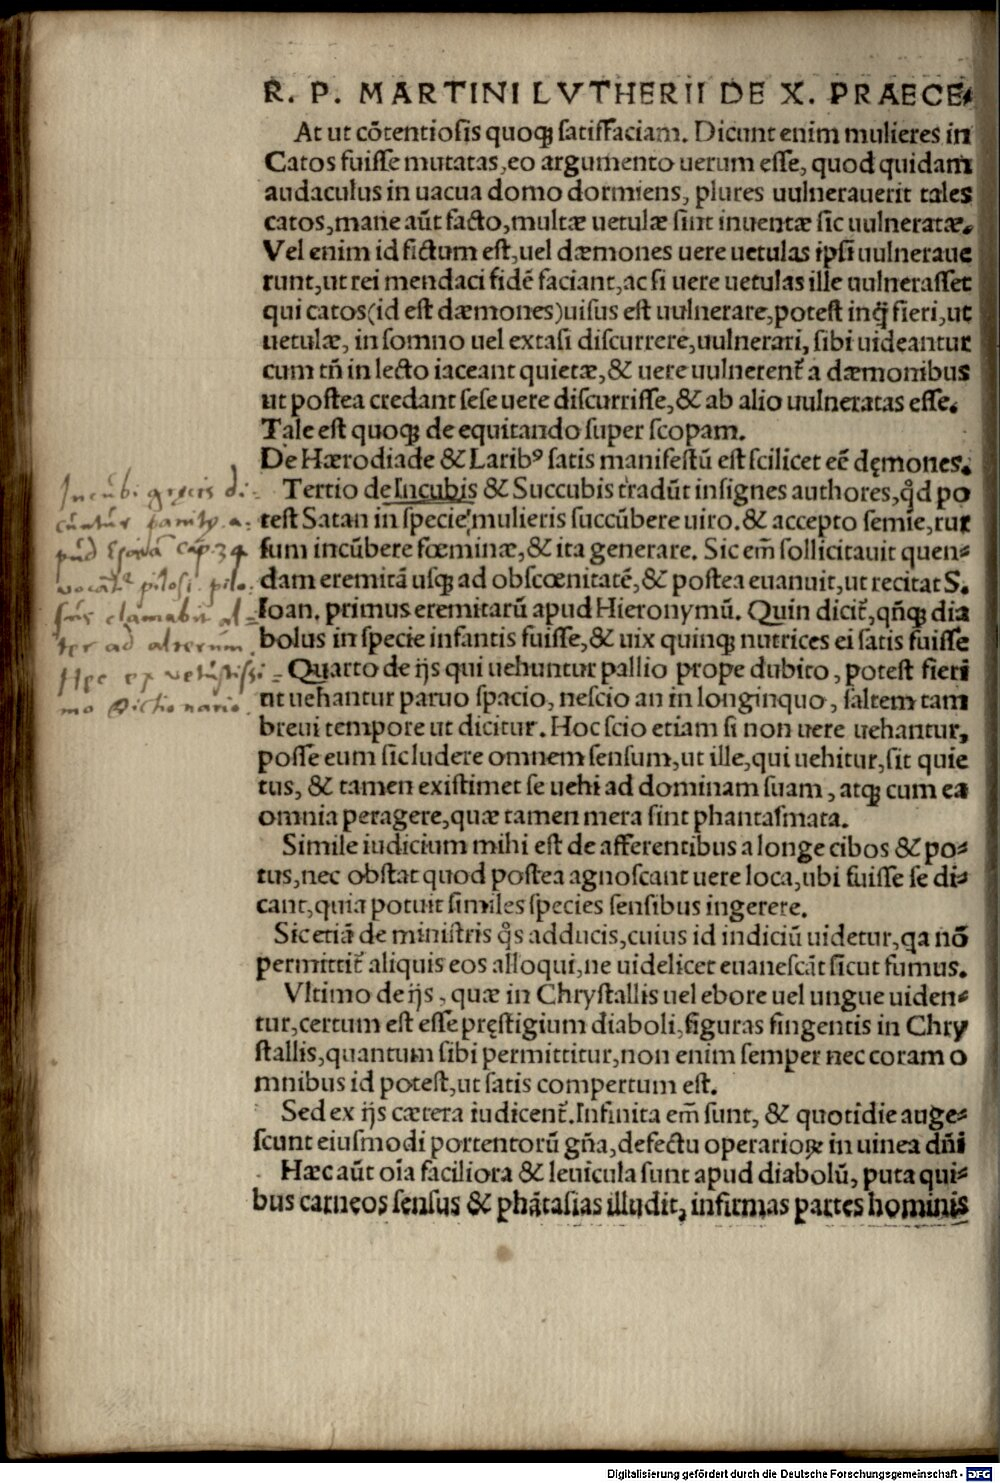 R. P. MARTINI LVTHERII DE X. PRAECE⸗
At ut cõtentiosis quoqꝫ satisfaciam. Dicunt enim mulieres in
Catos fuisse mutatas, eo argumento uerum esse, quod quidam
audaculus in uacua domo dormiens, plures uulnerauerit tales
catos, mane aũt facto, multæ uetulæ sint inuentæ sic uulneratæ.
Vel enim id fictum est, uel dæmones uere uetulas ipsi uulneraue
runt, ut rei mendaci fidẽ faciant, ac si uere uetulas ille uulnerasset
qui catos (id est dæmones) uisus est uulnerare, potest inqꝫ fieri, ut
uetulæ, in somno uel extasi discurrere, uulnerari, sibi uideantur
cum tñ in lecto iaceant quietæ, & uere uulnerent᷑ a dæmonibus
ut postea credant sese uere discurrisse, & ab alio uulneratas esse.
Tale est quoqꝫ de equitando super scopam.
De Hærodiade & Laribꝰ satis manifestũ est scilicet eẽ dęmones.
Tertio de Incubis & Succubis tradũt insignes authores, qd̃ po
test Satan in specie mulieris succũbere uiro. & accepto semĩe, rur
sum incũbere fœminæ, & ita generare. Sic em̃ sollicitauit quen⸗
dam eremitã usqꝫ ad obscœnitatẽ, & postea euanuit, ut recitat S.
Ioan. primus eremitarũ apud Hieronymũ. Quin dicit᷑, qñqꝫ dia
bolus in specie infantis fuisse, & uix quinqꝫ nutrices ei satis fuisse
Quarto de ijs qui uehuntur pallio prope dubito, potest fieri
ut uehantur paruo spacio, nescio an in longinquo, saltem tam
breui tempore ut dicitur. Hoc scio etiam si non uere uehantur,
posse eum sic ludere omnem sensum, ut ille, qui uehitur, sit quie
tus, & tamen existimet se uehi ad dominam suam, atqꝫ cum ea
omnia peragere, quæ tamen mera sint phantasmata.
Simile iudicium mihi est de afferentibus a longe cibos & po⸗
tus, nec obstat quod postea agnoscant uere loca, ubi fuisse se di⸗
cant, quia potuit similes species sensibus ingerere.
Sic etiã de ministris q̃s adducis, cuius id indiciũ uidetur, qa nõ
permittit᷑ aliquis eos alloqui, ne uidelicet euanescãt sicut fumus.
Vltimo de ijs, quæ in Chrystallis uel ebore uel ungue uiden⸗
tur, certum est esse pręstigium diaboli, figuras fingentis in Chry
stallis, quantum sibi permittitur, non enim semper nec coram o
mnibus id potest, ut satis compertum est.
Sed ex ijs cætera iudicent᷑. Infinita em̃ sunt, & quotidie auge⸗
scunt eiusmodi portentorũ gña, defectu operarioꝝ in uinea dñi
Hæc aũt oĩa faciliora & leuicula sunt apud diabolũ, puta qui⸗
bus carneos sensus & phãtasias illudit, infirmas partes hominis
Incubi gręcis di⸗
cũntur a⸗
pud Esaiã cap. 34
vocãt᷑ pilosi. pilo⸗
sus clamabit al⸗
ter ad alterum.
Hęc ex vetustissi⸗
mo Dictionario.
Digitalisierung gefördert durch die Deutsche Forschungsgemeinschaft - DFG